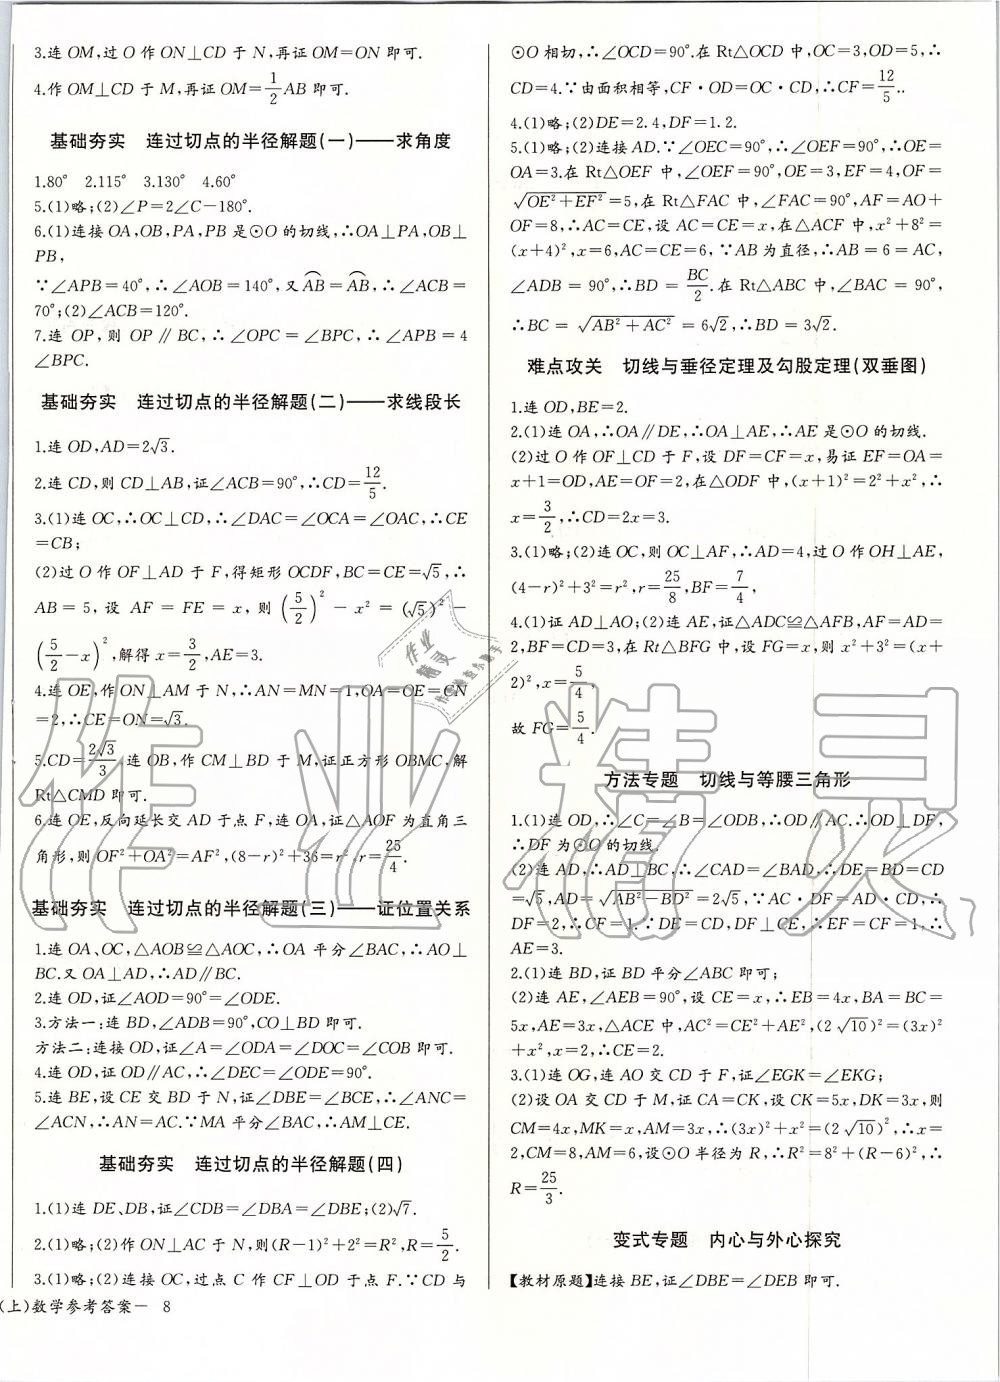 3.连 OM,过 O 作 ON⊥CD 于 N,再证 OM=ON 即可.
4.作 OM⊥CD 于 M,再证 OM=1/2AB 即可.
基础夯实 连过切点的半径解题(一)——求角度
1.80° 2.115° 3.130° 4.60°
5.(1)略;(2)∠P=2∠C-180°.
6.(1)连接 OA,OB,PA,PB 是⊙O 的切线,∴OA⊥PA,OB⊥
PB,
∵∠APB=40°,∴∠AOB=140°,又AB⌢=AB⌢,∴∠ACB=
70°;(2)∠ACB=120°.
7.连 OP,则 OP∥BC,∴∠OPC=∠BPC,∴∠APB=4
∠BPC.
基础夯实 连过切点的半径解题(二)——求线段长
1.连 OD,AD=2√3.
2.连 CD,则 CD⊥AB,证∠ACB=90°,∴CD=12/5.
3.(1)连 OC,∴OC⊥CD,∴∠DAC=∠OCA=∠OAC,∴CE
=CB;
(2)过 O 作 OF⊥AD 于 F,得矩形 OCDF,BC=CE=√5,∴
AB=5,设 AF=FE=x,则(5/2)²-x²=(√5)²-
(5/2-x)²,解得 x=3/2,AE=3.
4.连 OE,作 ON⊥AM 于 N,∴AN=MN=1,OA=OE=CN
=2,∴CE=ON=√3.
5.CD=2√3/3 连 OB,作 CM⊥BD 于 M,证正方形 OBMC,解
Rt△CMD 即可.
6.连 OE,反向延长交 AD 于点 F,连 OA,证△AOF 为直角三
角形,则 OF²+OA²=AF²,(8-r)²+36=r²,r=25/4.
基础夯实 连过切点的半径解题(三)——证位置关系
1.连 OA、OC,△AOB≌△AOC,∴OA 平分∠BAC,∴AO⊥
BC.又 OA⊥AD,∴AD∥BC.
2.连 OD,证∠AOD=90°=∠ODE.
3.方法一:连 BD,∠ADB=90°,CO⊥BD 即可.
方法二:连接 OD,证∠A=∠ODA=∠DOC=∠COB 即可.
4.连 OD,证 OD∥AC,∴∠DEC=∠ODE=90°.
5.连 BE,设 CE 交 BD 于 N,证∠DBE=∠BCE,∴∠ANC=
∠ACN,∴AN=AC.∵MA 平分∠BAC,∴AM⊥CE.
基础夯实 连过切点的半径解题(四)
1.(1)连 DE、DB,证∠CDB=∠DBA=∠DBE;(2)√7.
2.(1)略;(2)作 ON⊥AC 于 N,则(R-1)²+2²=R²,R=5/2.
3.(1)略;(2)连接 OC,过点 C 作 CF⊥OD 于点 F.∵CD 与
(上)数学参考答案— 8
⊙O 相切,∴∠OCD=90°.在 Rt△OCD 中,OC=3,OD=5,∴
CD=4.∵由面积相等,CF·OD=OC·CD,∴CF=12/5..
4.(1)略;(2)DE=2.4,DF=1.2.
5.(1)略;(2)连接 AD.∵∠OEC=90°,∴∠OEF=90°,∴OE=
OA=3.在 Rt△OEF 中,∠OEF=90°,OE=3,EF=4,OF=
√(OE²+EF²)=5,在 Rt△FAC 中,∠FAC=90°,AF=AO+
OF=8,∴AC=CE,设 AC=CE=x,在△ACF 中,x²+8²=
(x+4)²,x=6,AC=CE=6,∵AB 为直径,∴AB=6=AC,
∠ADB=90°,∴BD=BC/2.在 Rt△ABC 中,∠BAC=90°,
∴BC=√(AB²+AC²)=6√2,∴BD=3√2.
难点攻关 切线与垂径定理及勾股定理(双垂图)
1.连 OD,BE=2.
2.(1)连 OA,∴OA∥DE,∴OA⊥AE,∴AE 是⊙O 的切线.
(2)过 O 作 OF⊥CD 于 F,设 DF=CF=x,易证 EF=OA=
x+1=OD,AE=OF=2,在△ODF 中,(x+1)²=2²+x²,∴
x=3/2,∴CD=2x=3.
3.(1)略;(2)连 OC,则 OC⊥AF,∴AD=4,过 O 作 OH⊥AE,
(4-r)²+3²=r²,r=25/8,BF=7/4,
4.(1)证 AD⊥AO;(2)连 AE,证△ADC≌△AFB,AF=AD=
2,BF=CD=3,在 Rt△BFG 中,设 FG=x,则 x²+3²=(x+
2)²,x=5/4,
故 FG=5/4.
方法专题 切线与等腰三角形
1.(1)连 OD,∴∠C=∠B=∠ODB,∴OD∥AC.∴OD⊥DF,
∴DF 为⊙O 的切线.
(2)连 AD,∴AD⊥BC,∴∠CAD=∠BAD,∴DE=BD=CD
=√5,AD=√(AB²-BD²)=2√5,∵AC·DF=AD·CD,∴
DF=2,∴CF=1.∵DE=CD,DF⊥CE,∴EF=CF=1,∴
AE=3.
2.(1)连 BD,证 BD 平分∠ABC 即可;
(2)连 AE,∠AEB=90°,设 CE=x,∴EB=4x,BA=BC=
5x,AE=3x,△ACE 中,AC²=CE²+AE²,(2√10)²=(3x)²
+x²,x=2,∴CE=2.
3.(1)连 OG,连 AO 交 CD 于 F,证∠EGK=∠EKG;
(2)设 OA 交 CD 于 M,证 CA=CK,设 CK=5x,DK=3x,则
CM=4x,MK=x,AM=3x,∴(3x)²+x²=(2√10)²,∴x=
2,CM=8,AM=6,设⊙O 半径为 R,∴R²=8²+(R-6)²,∴
R=25/3.
变式专题 内心与外心探究
【教材原题】连接 BE,证∠DBE=∠DEB 即可.
作业精灵